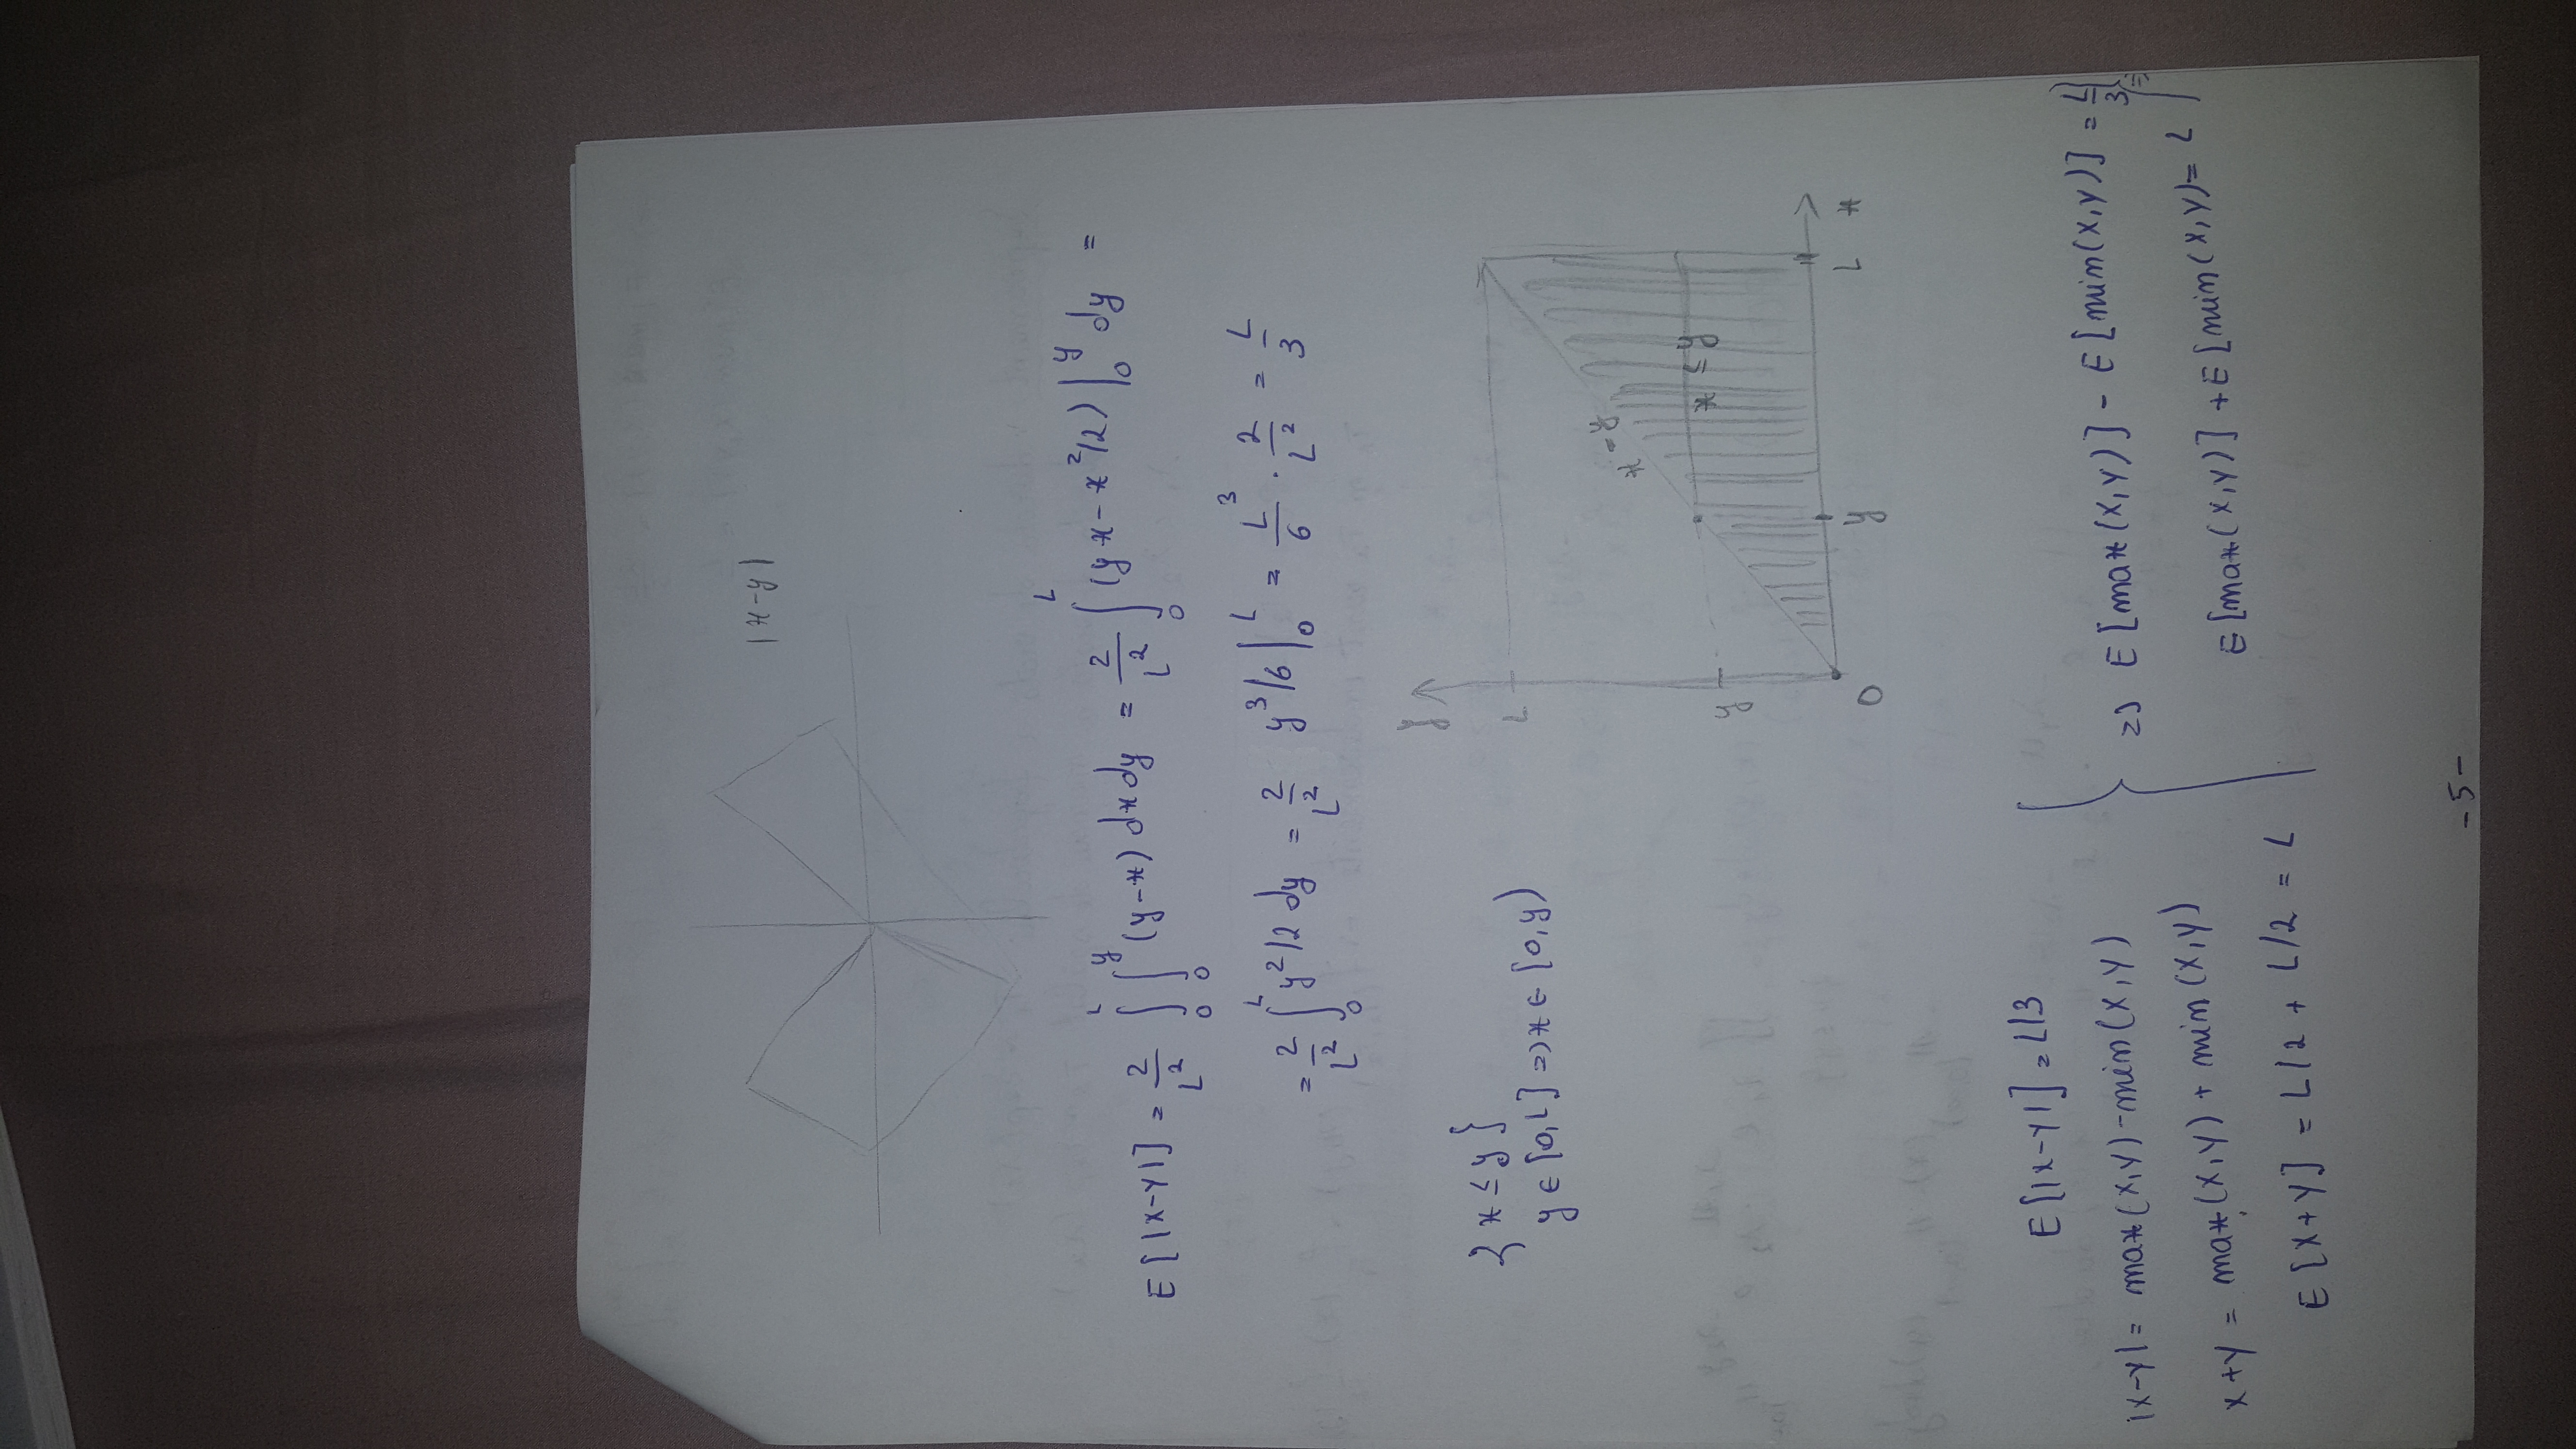 |x-y|
E[|X-Y|] = 2/L² ∫₀ᴸ ∫₀ʸ (y-x) dx dy = 2/L² ∫₀ᴸ (yx - x²/2) |₀ʸ dy =
= 2/L² ∫₀ᴸ y²/2 dy = 2/L² y³/6 |₀ᴸ = L³/6 · 2/L² = L/3
{x ≤ y}
y ∈ [0,L] => x ∈ [0,y)
y
L
x = y
x ≤ y
y
0
y
L
x
E[|X-Y|] = L/3
|X-Y| = max(X,Y) - min(X,Y)
X+Y = max(X,Y) + min(X,Y)
E[X+Y] = L/2 + L/2 = L
=> E[max(X,Y)] - E[min(X,Y)] = L/3
E[max(X,Y)] + E[min(X,Y) = L
=>
-5-